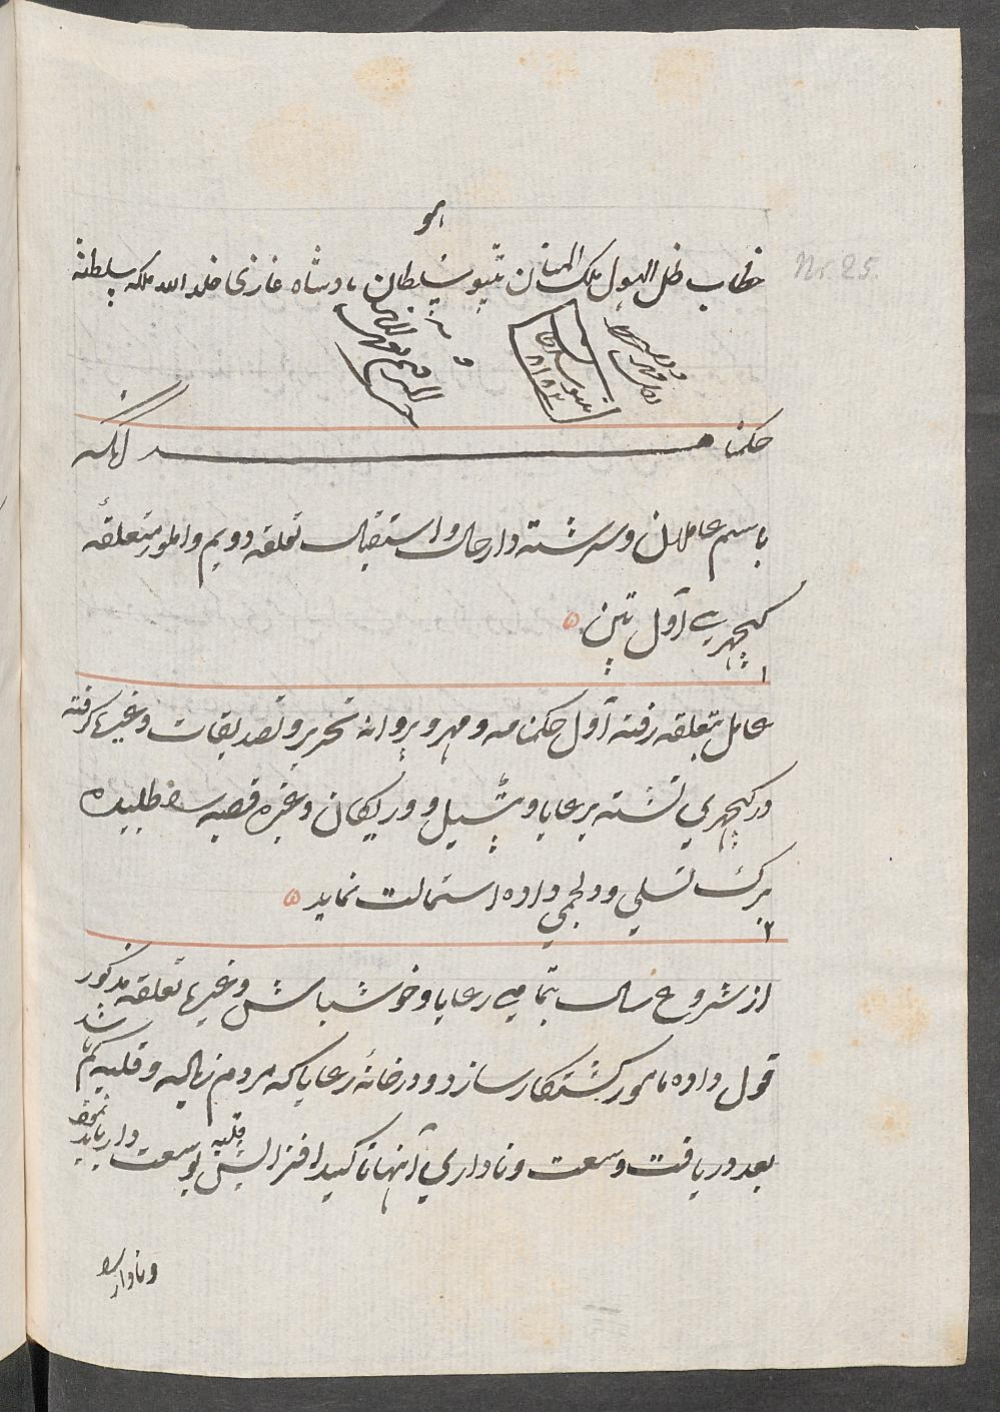 هو
خطاب ظل الهول ملک المنان ٹیپو سلطان بادشاه غازی خلد الله ملکه و سلطنته
Nr. 25.
حکمنامه آنکه
باسم عاملان وسررشته دار حال واستقبال تعلقه دویم وامور متعلقهٔ
کچهری اول پتن ۵
۱
عامل بتعلقه رفته اول حکمنامه ومهر وپروانه تحریر وتصدیقات وغیرها گرفته
در کچهری نشسته برعایا وپٹیل و وریکان وغیره قصبه طلبیده
هریک تسلی و دلجمعی داده استمالت نماید ۵
۲
از شروع سال بتمامی رعایا وخوشباش وغیرها تعلقه مذکور
قول داده مامور کشتکار سازد و در خانهٔ رعایا که مردم زیاده و قلبه کم باشد
بعد دریافت وسعت وناداری آنها تاکید افزایش قلبه بوسعت دار باید نمود
وناداران